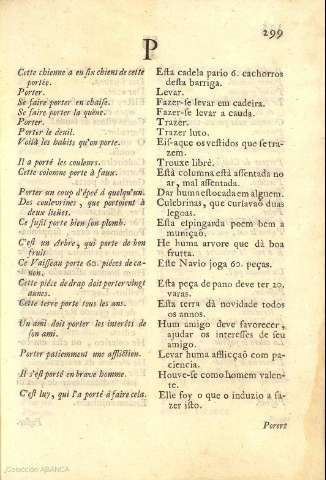 299
P
Cette chienne a en six chiens de cette
portée.
Porter.
Se faire porter en chaise.
Se faire porter la quëue.
Porter.
Porter le deuil.
Voilà les habits qu'on porte.
Il a porté les couleurs.
Cette colomne porte à faux.
Porter un coup d'épeé à quelqu'un.
Des coulevrines, que portoient à
deux lieües.
Ce fusil porte bien son plomb.
C'est un arbre, qui porte de bon
fruit
Ce Vaisseau porte 60. piéces de ca-
non.
Cette piéce de drap doit porter vingt
aunes.
Cette terre porte tous les ans.
Un ami doit porter les interêts de
son ami.
Porter patiemment une affliction.
Il s'est porté en brave homme.
C'est luy, qui l'a porté à faire cela.
Esta cadela pario 6. cachorros
desta barriga.
Levar.
Fazer-se levar em cadeira.
Fazer-se levar a cauda.
Trazer.
Trazer luto.
Eis-aque os vestidos que se tra-
zem.
Trouxe librè.
Està columna està assentada no
ar, mal assentada.
Dar huma estocada em alguem.
Culebrinas, que curtavaõ duas
legoas.
Esta espingarda poem bem a
muniçaõ.
He huma arvore que dà boa
frutta.
Este Navio joga 60. peças.
Esta peça de pano deve ter 20.
varas.
Esta terra dà novidade todos
os annos.
Hum amigo deve favorecer,
ajudar os interesses de seu
amigo.
Levar huma afflicçaõ com pa-
ciencia.
Houve-se como homem valen-
te.
Elle foy o que o induzio a fa-
zer isto.
Porert
Colección ABANCA